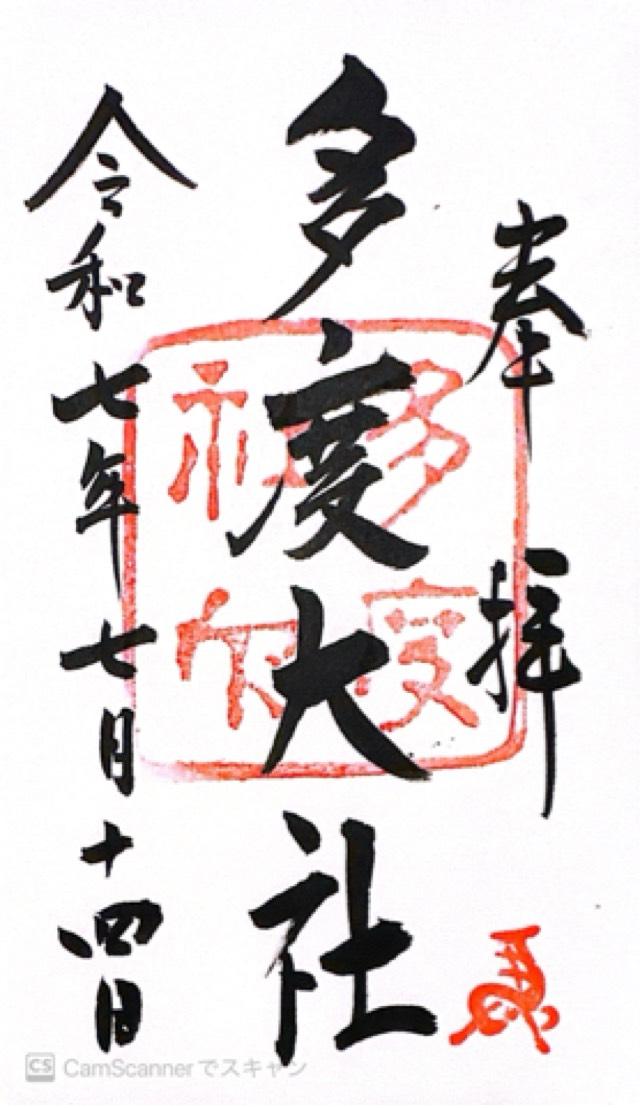 奉拝
多度大社
令和七年七月十四日
多度
神社
CS CamScannerでスキャン